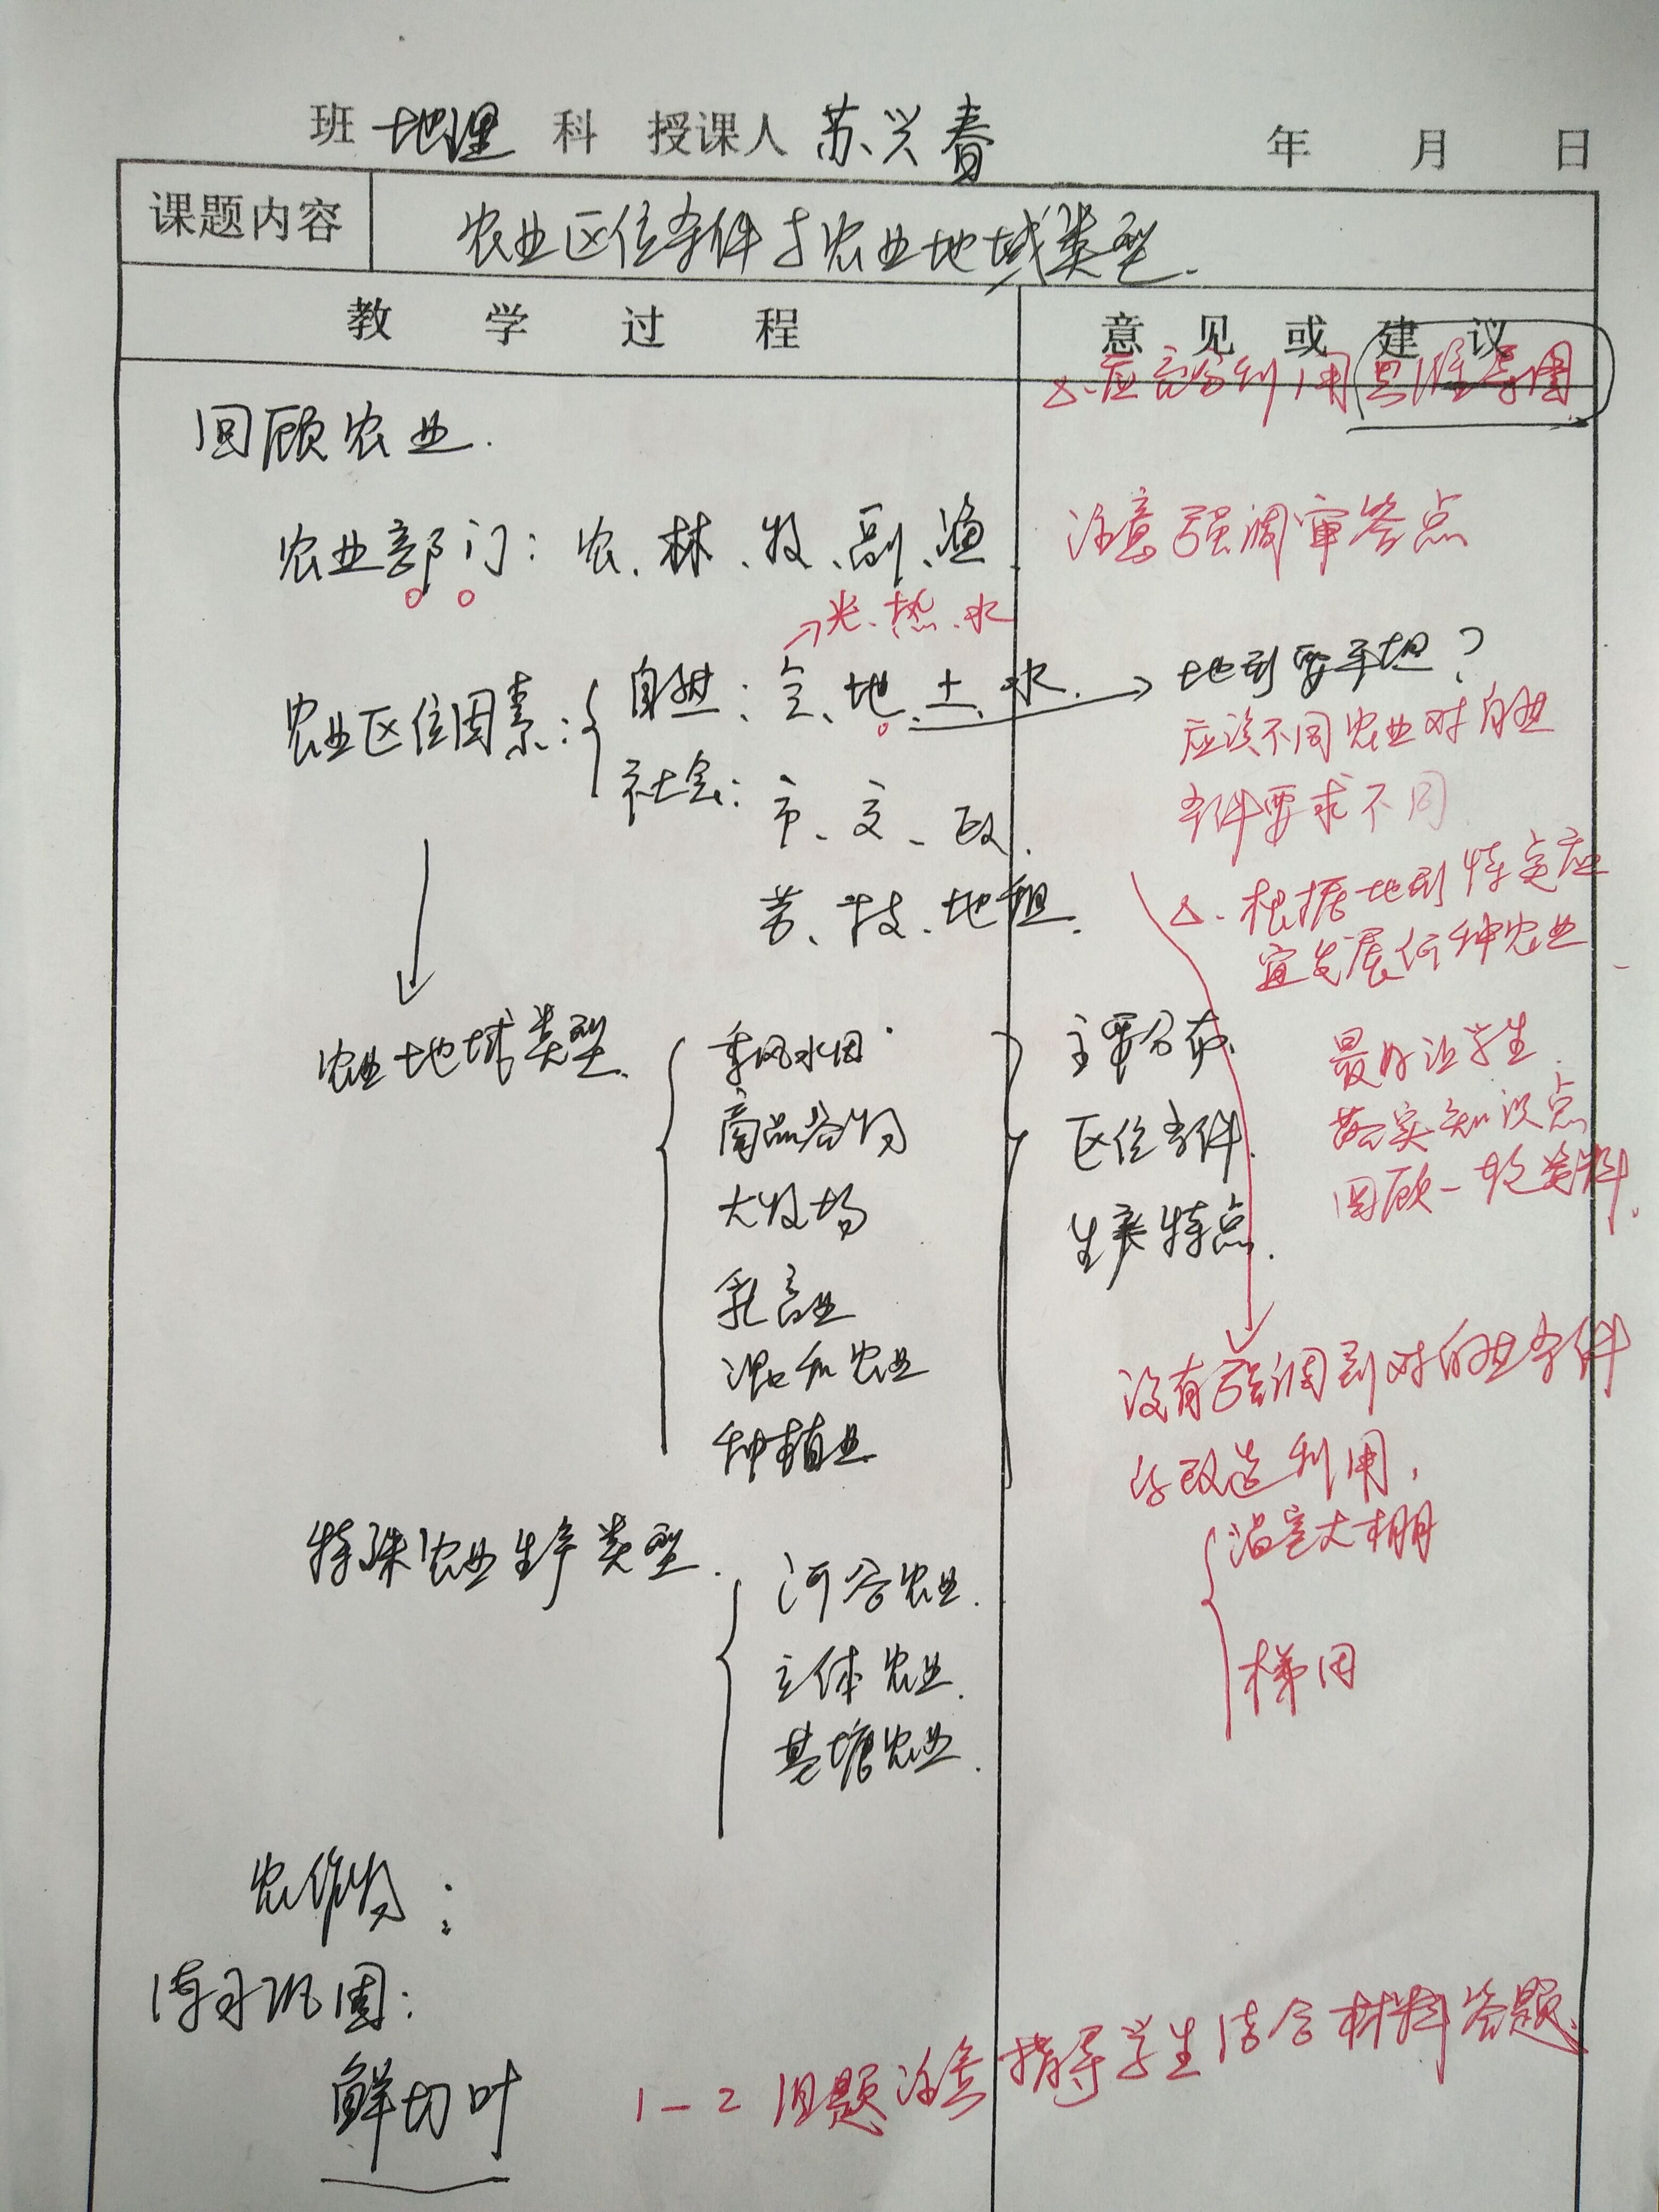 班 地理 科 授课人 苏兴春 年 月 日
课题内容 农业区位条件与农业地域类型.
教学过程 意见或建议
△.应充分利用思维导图
回顾农业.
农业部门：农、林、牧、副、渔 注意强调审答点
→光、热、水
农业区位因素：自然：气、地、土、水. → 地形要平坦？
应该不同农业对自然
条件要求不同
社会：市、交、政.
劳、技、地租.
△.根据地形特点应
宜发展何种农业
农业地域类型.
季风水田
商品谷物
大牧场
乳畜业
混和农业
种植业
主要分布.
区位条件.
生产特点.
最好让学生
落实知识点
回顾一轮资料.
没有强调到对自然条件
的改造利用，
温室大棚
梯田
特殊农业生产类型.
河谷农业.
立体农业.
基塘农业.
农作物：
练习巩固：
鲜切叶
1-2 问题注意指导学生结合材料答题.